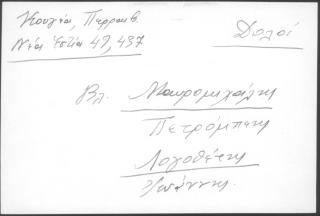 Κουγέα, Περραιβ.
Νέα Εστία 49, 437
Δολοί
Βλ. Μαυρομιχάλης
Πετρόμπεης
Λογοθέτης
Ιωάννης.